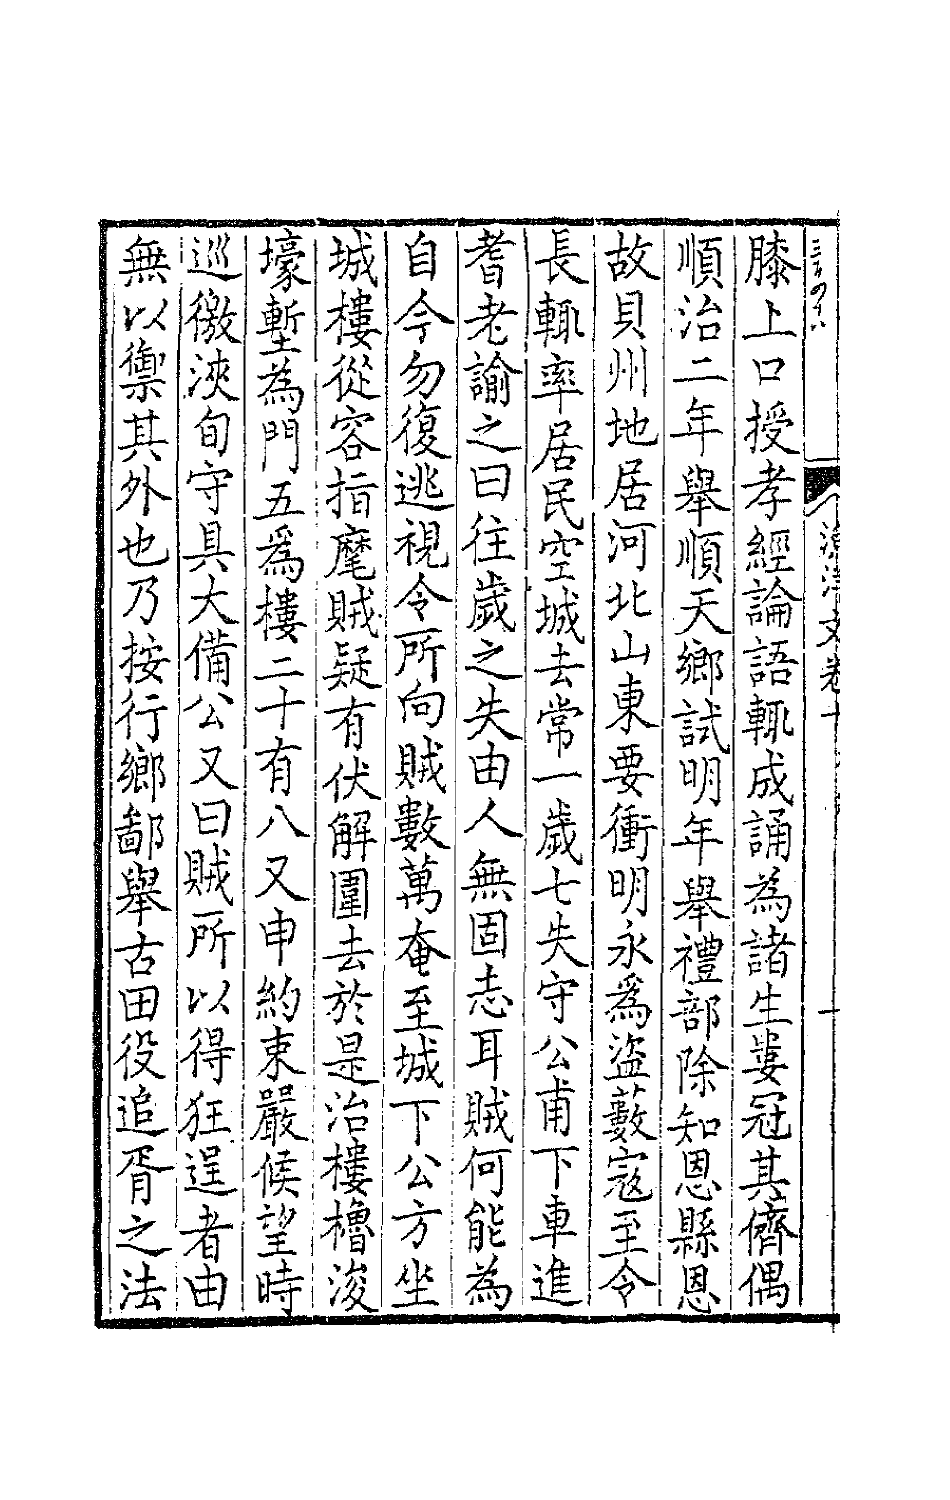 膝上口授孝經論語輒成誦為諸生屢冠其儕偶
順治二年舉順天鄉試明年舉禮部除知恩縣恩
故貝州地居河北山東要衝明永爲盜藪寇至令
長輒率居民空城去常一歲七失守公甫下車進
耆老諭之曰往歲之失由人無固志耳賊何能為
自今勿復逃視令所向賊數萬奄至城下公方坐
城樓從容指麾賊疑有伏解圍去於是治樓櫓浚
壕塹為門五爲樓二十有八又申約束嚴候望時
巡徼浹旬守具大備公又曰賊所以得狂逞者由
無以禦其外也乃按行鄉鄙舉古田役追胥之法
文卷十